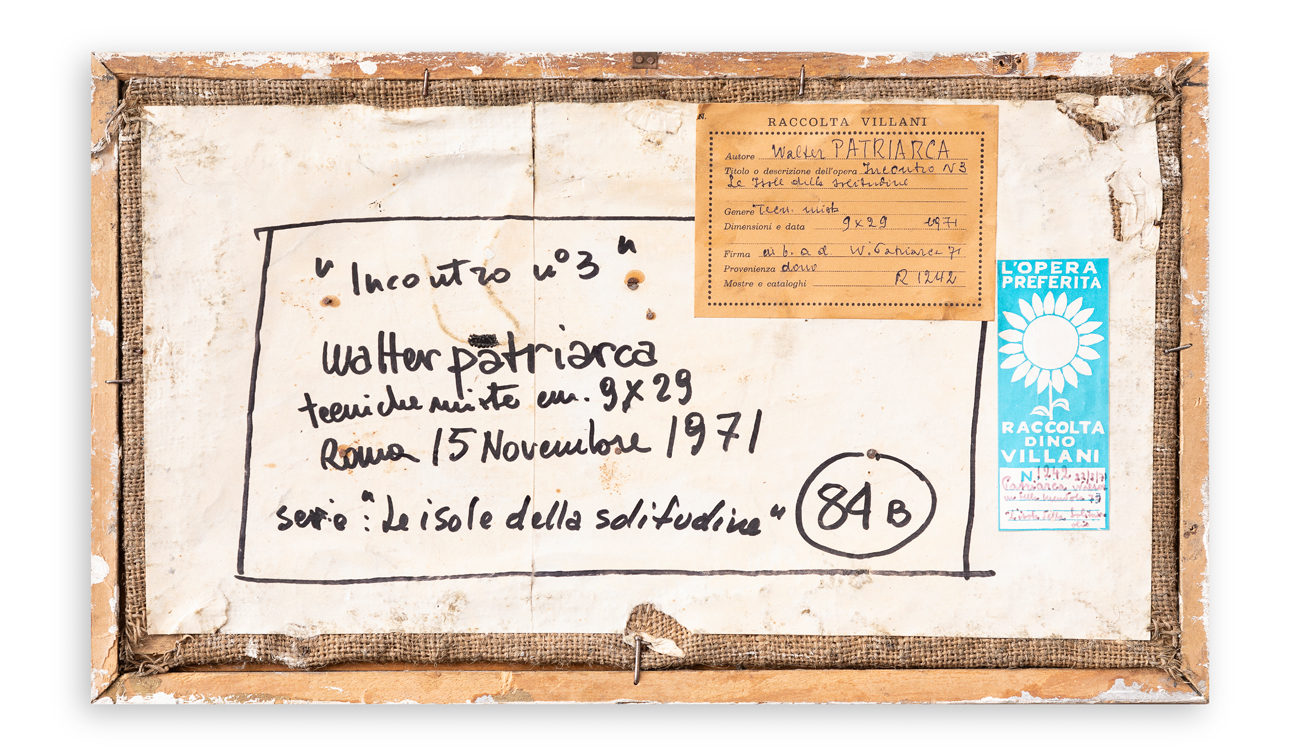 N.
RACCOLTA VILLANI
Autore Walter PATRIARCA
Titolo o descrizione dell'opera Incontro N3
Le Isole della solitudine
Genere Tecn. mista
Dimensioni e data 9x29 1971
Firma in b. a d. W. Patriarca 71
Provenienza dono
Mostre e cataloghi R 1242
"Incontro n°3"
Walter patriarca
tecniche miste cm. 9x29
Roma 15 Novembre 1971
serie: "Le isole della solitudine"
84 B
L'OPERA
PREFERITA
RACCOLTA
DINO
VILLANI
N. 1242
Patriarca Walter